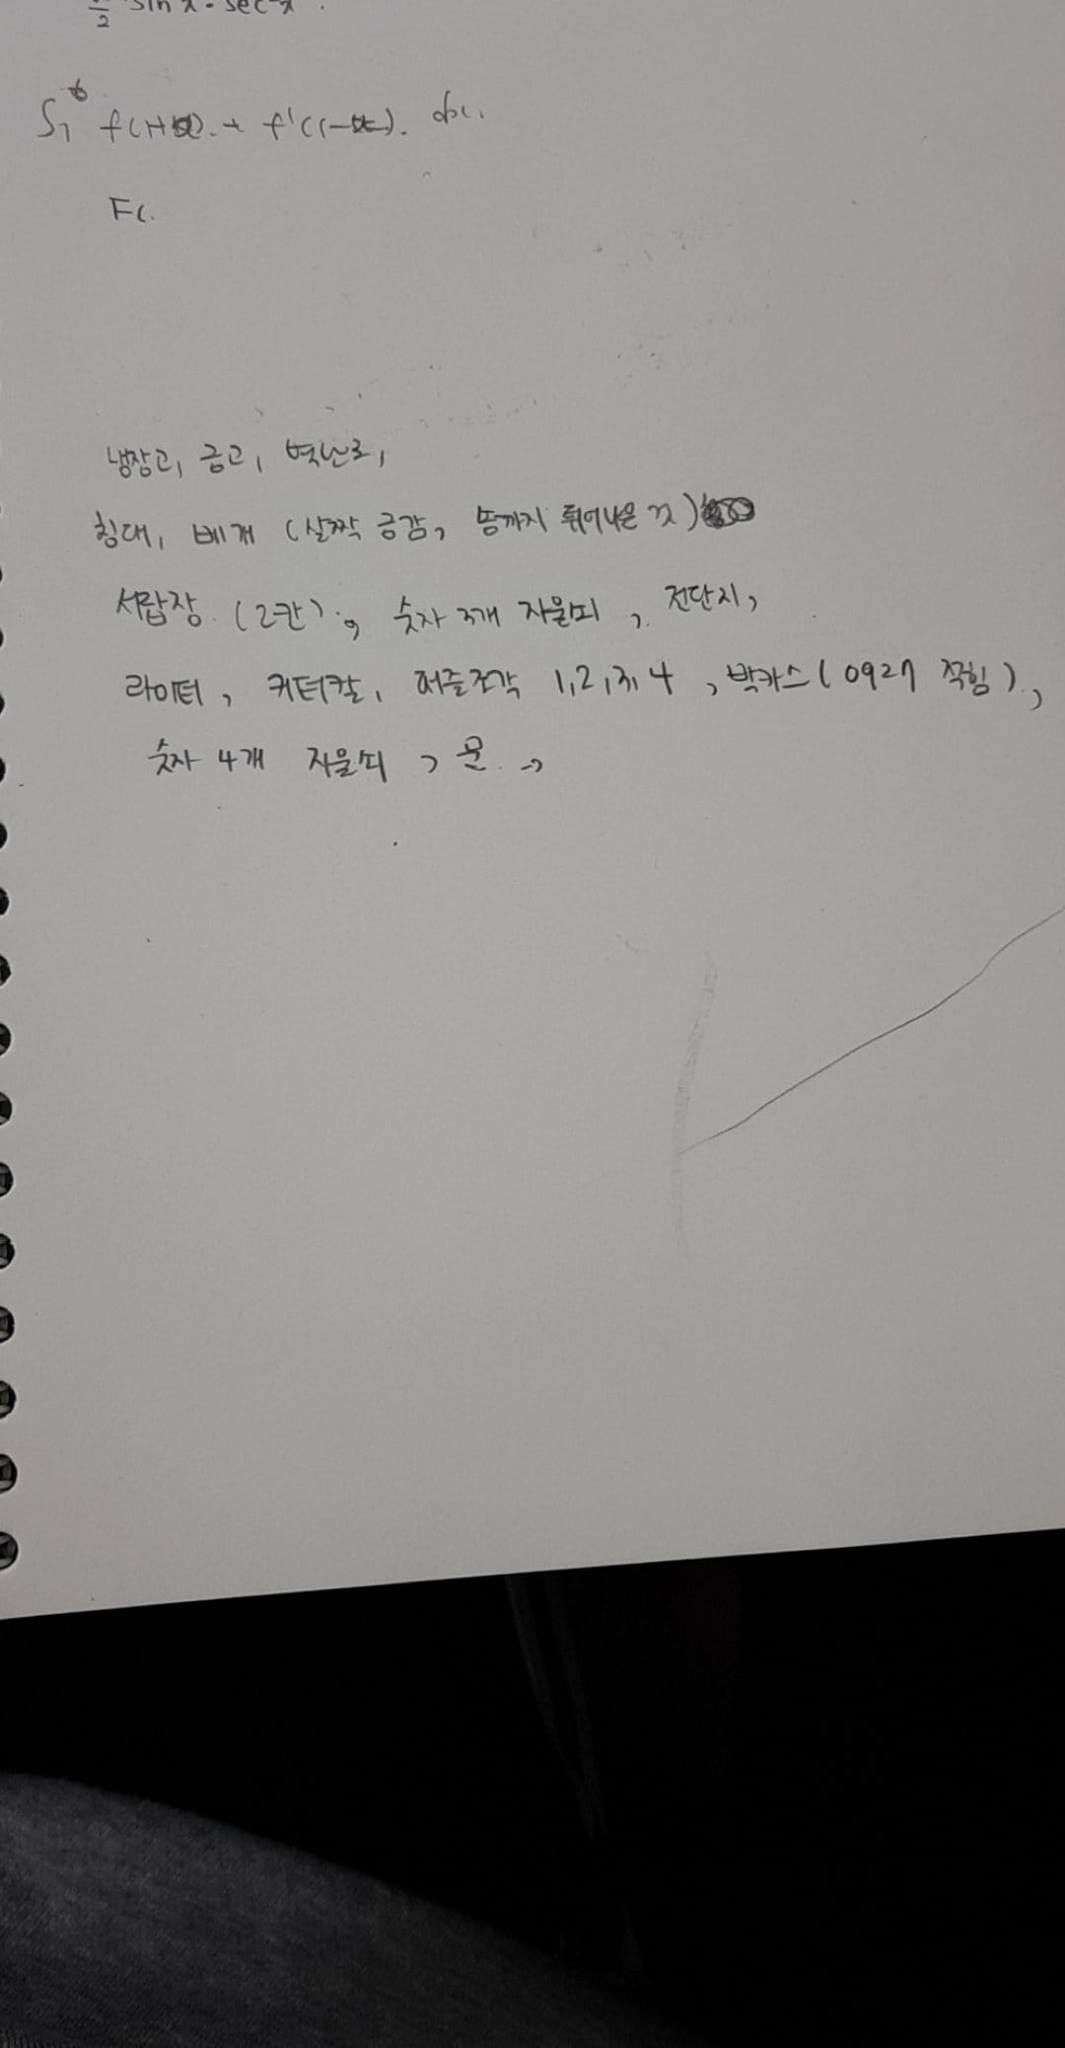 sin x · sec x
Fc.
냉장고, 금고, 벽난로,
침대, 베개 (살짝 금감, 솜까지 튀어나온 것)
서랍장. (2칸), 숫자 3개 자물쇠, 전단지,
라이터, 커터칼, 퍼즐조각 1,2,3,4, 박카스(0927 적힘),
숫자 4개 자물쇠, 문. →